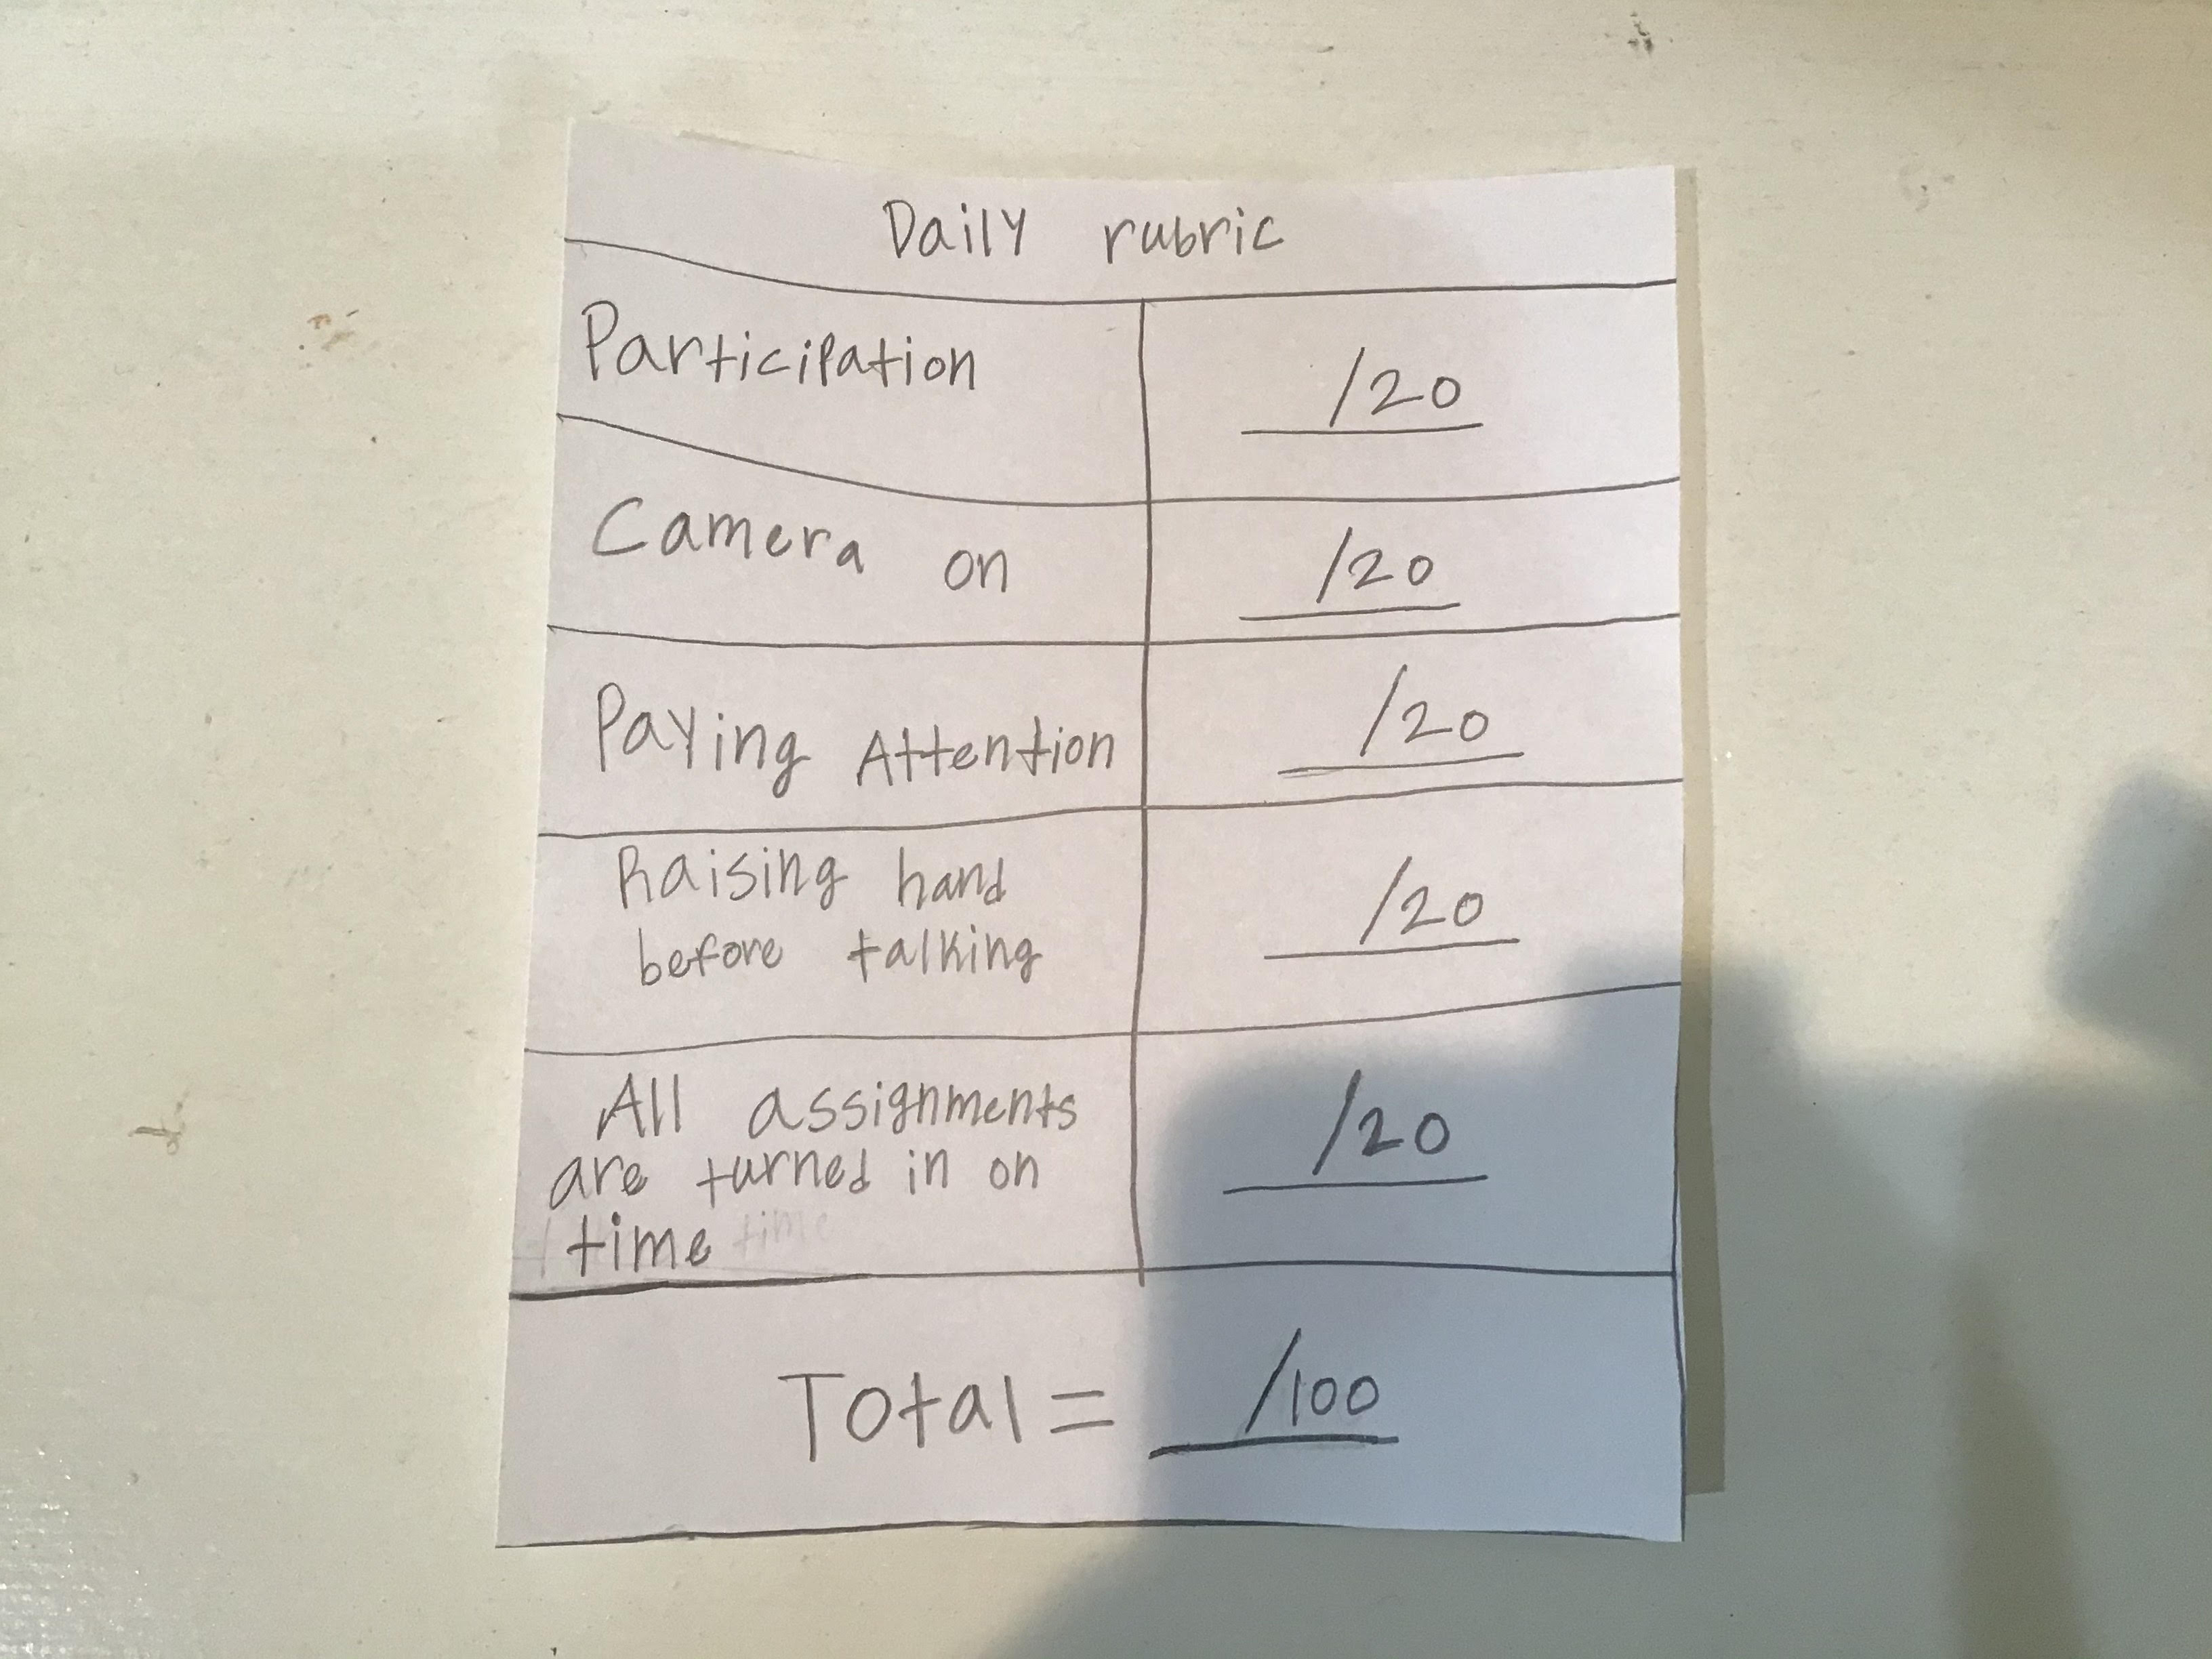 Daily rubric
Participation /20
Camera on /20
Paying Attention /20
Raising hand
before talking /20
All assignments
are turned in on
time time /20
Total = /100